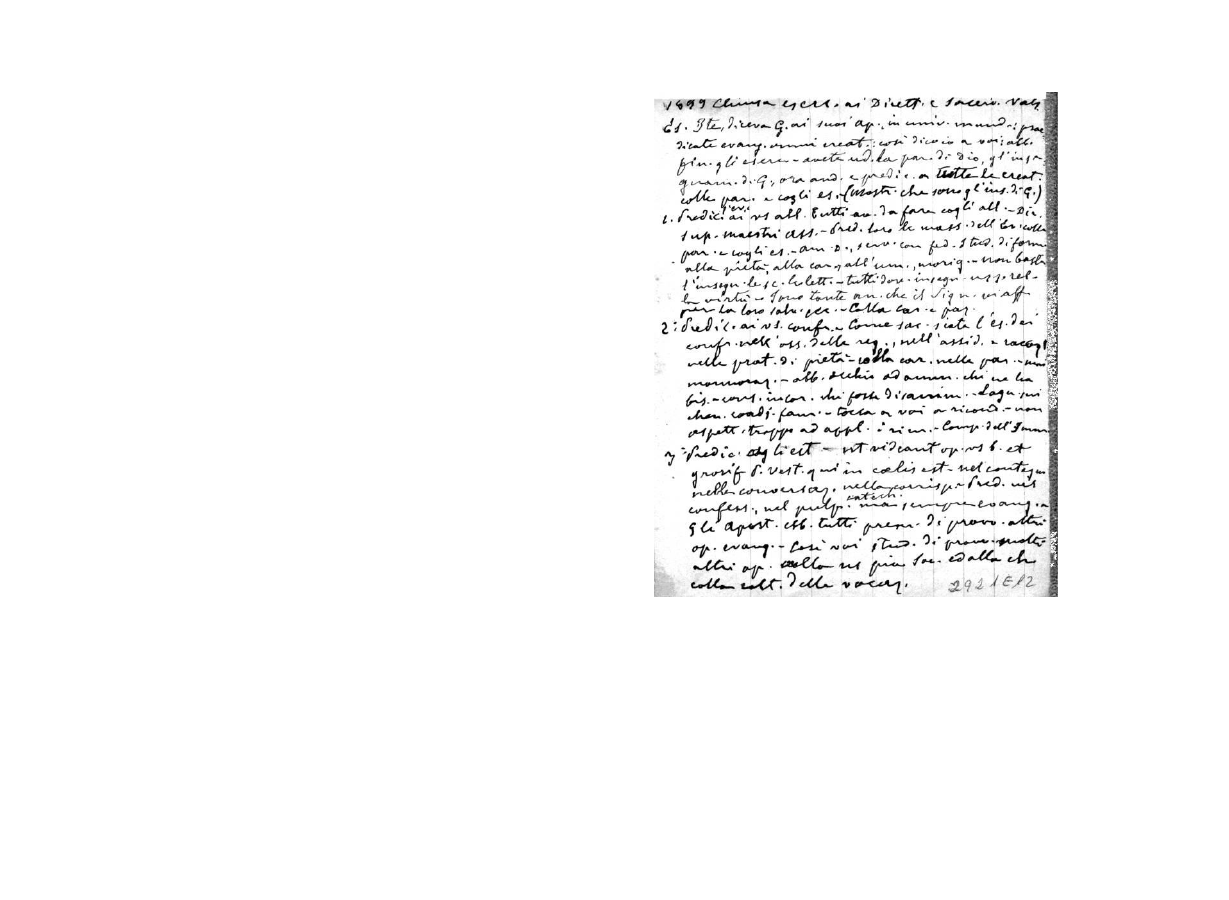 1899 Chiusa eserc. ai Dirett. e Sacerd. Vals
Es. Ite, diceva G. ai suoi ap., in univ. mund. prae
dicate evang. omni creat.: così dico io a voi: all.
fin. gli eserc. - avete ud. la par. di Dio, gl'inse
gnam. di G., ora and. e predic. a tutte le creat.
colle par. e cogli es. (mostr. che sono gl'ins. di G.)
1. Predic. ai vs all. tutti av. da fare cogli all. - Dir.
sup. maestri ass. - Pred. loro le mass. dell'Ev. colle
par. e cogli es. - am. D., serv. con fed. Stud. di form
alla pietà, alla car., all'um., morig. - non basta
l'insegn. le sc. lett. - tutti dov. insegn.
la virtù - Sono tante an. che il Sign. vi aff
per la loro salv. - Colla car. e paz.
2.: Predic. ai vs. confr. - Come sac. siate l'es. dei
confr. nell'oss. delle reg., nell'assid. e
nelle prat. di pietà - colla car. nelle par. - non
mormoraz. - abb. occhio ad amm. chi ne ha
bis. - cons. incor. chi fosse disanim. -
cher. coadj. fam. - tocca a voi a ricord. - non
aspett. troppo ad appl. i rim. - Comp. dell'Imm
3.: Predic. agli est - ut videant op. vs b. et
glorif P. Vest. qui in cœlis est - nel contegn
nelle conversaz. nella corrisp. Pred. nel
catech.
confess., nel pulp. ma sempre evang.
Gli Apost. ebb. tutti prem. di provv. altri
op. evang. - Così voi stud. di provv. molti
altri op. alla ns pia Soc. ed alla ch
colla colt. delle vocaz.
2921E12